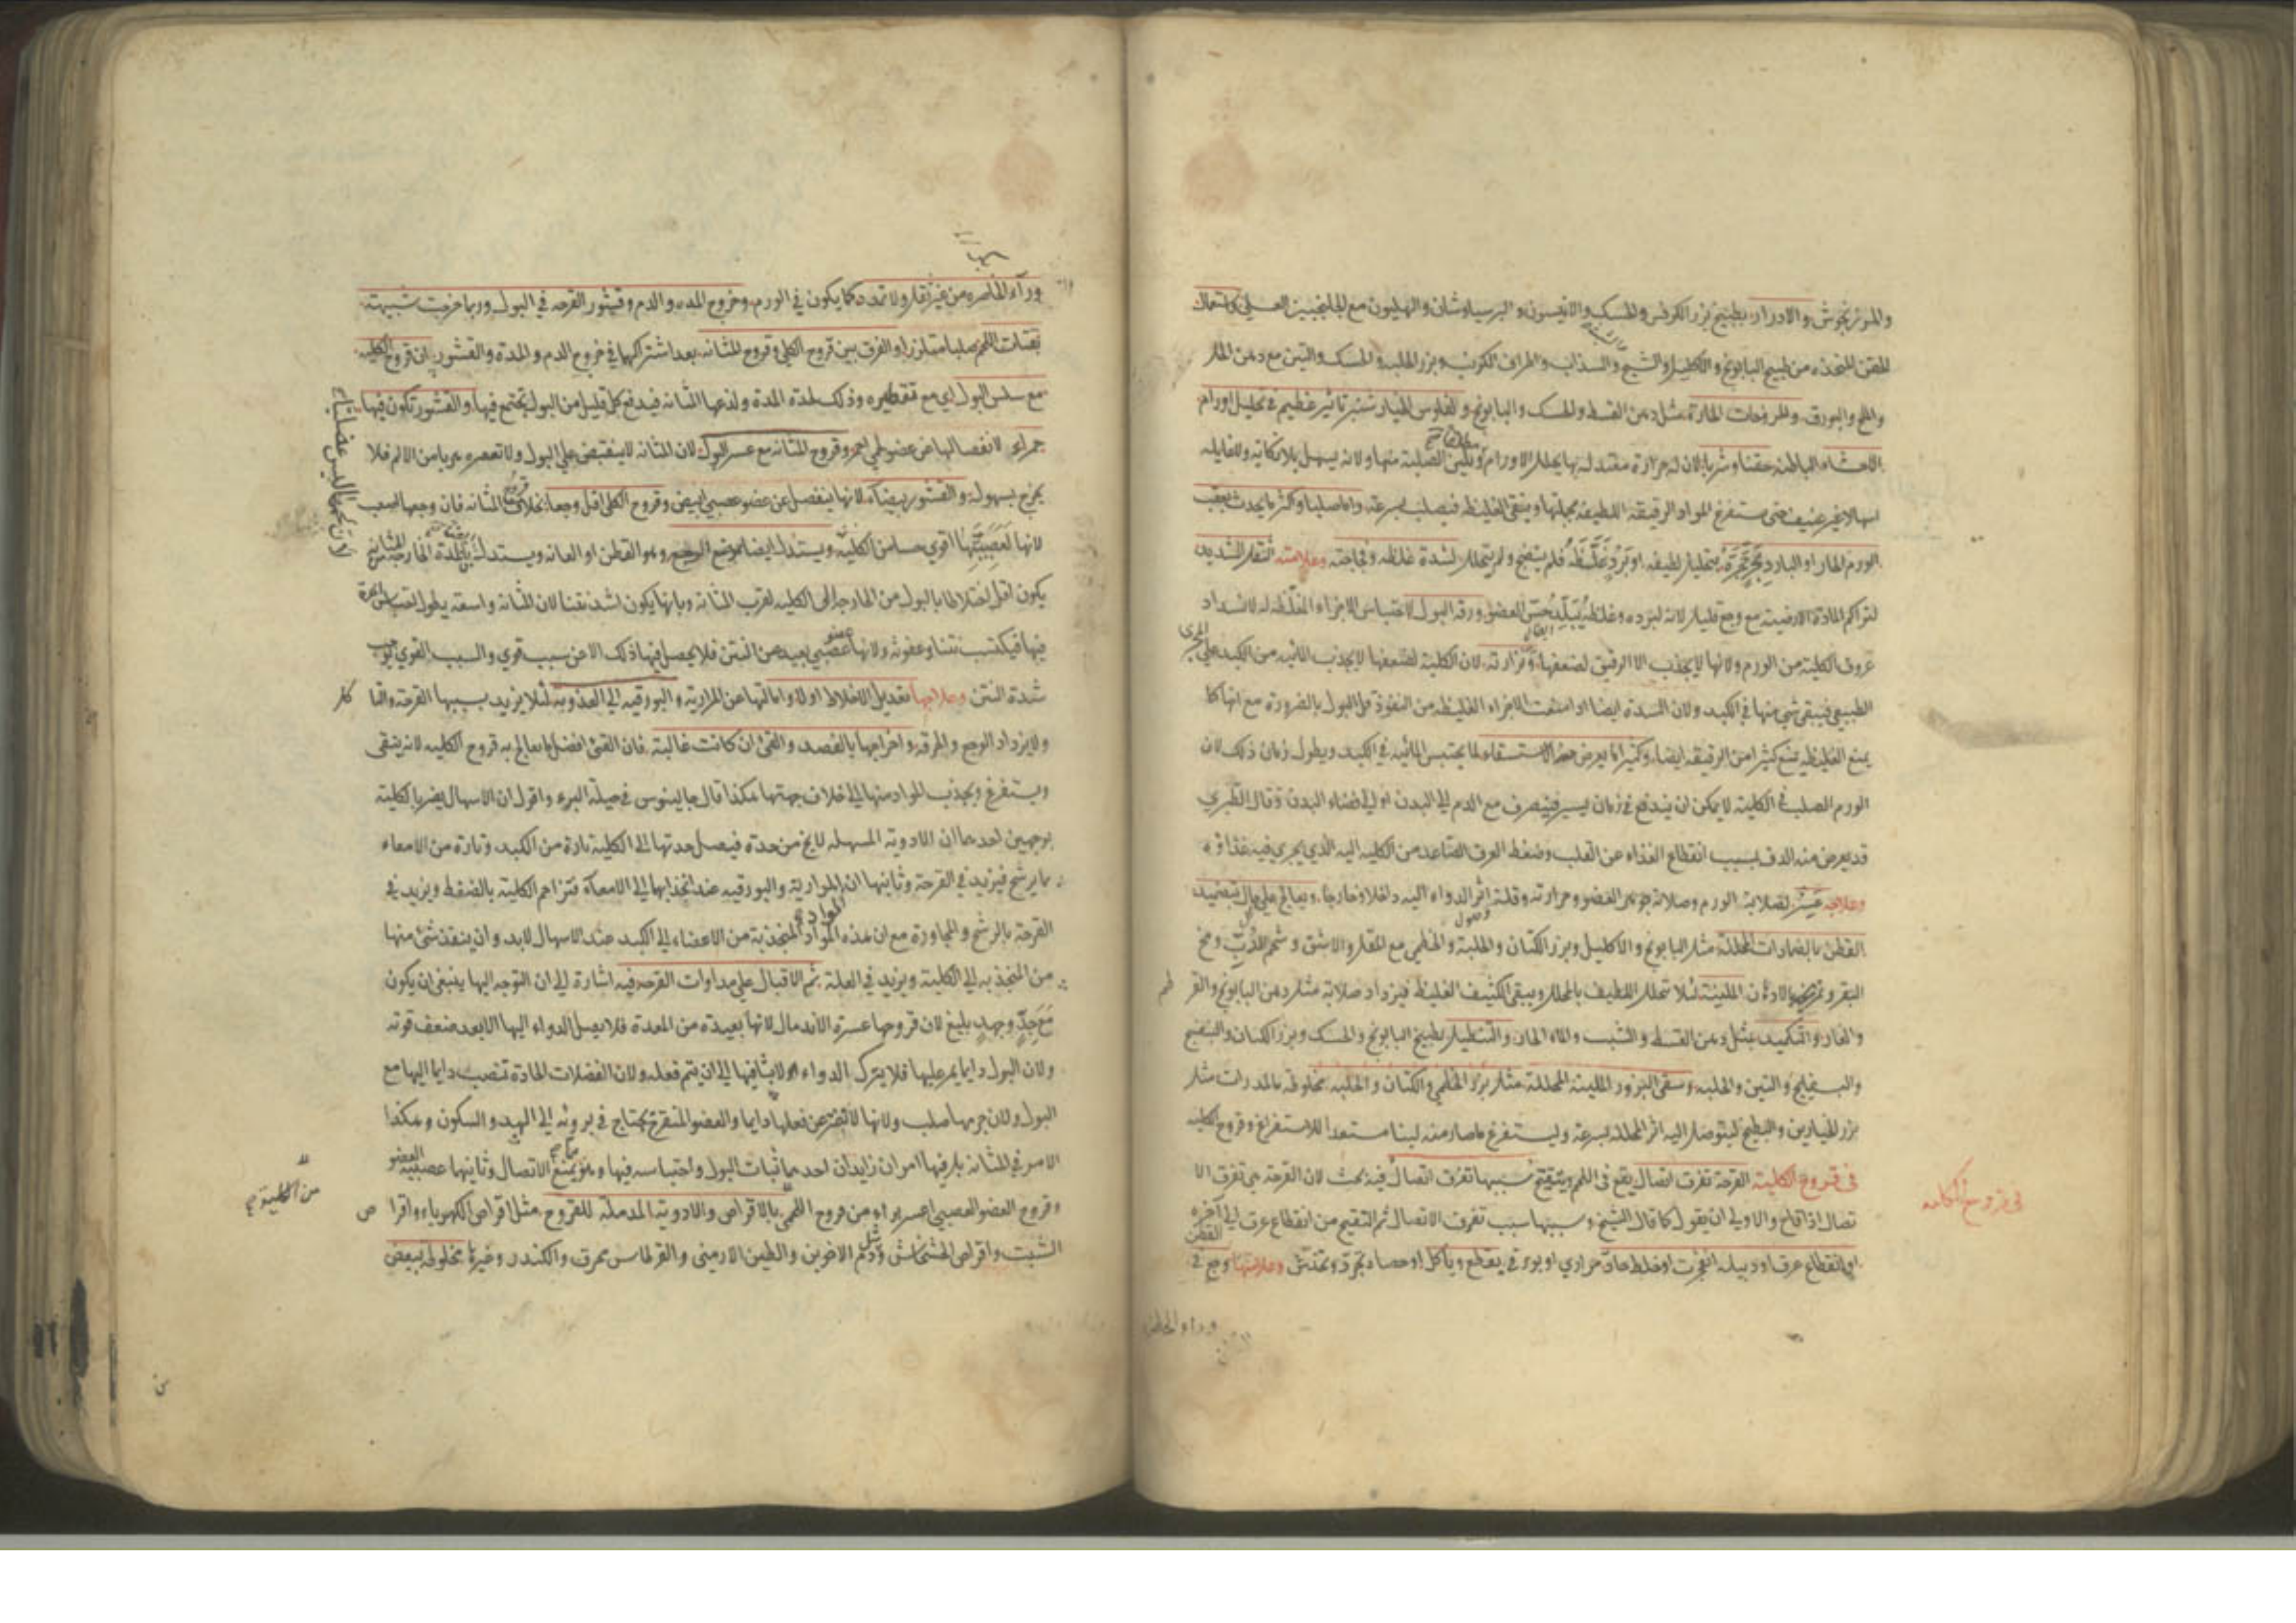 والمرزنجوش والادرار بطبيخ بزر الكرفس والحسك والانيسون والبرسياوشان والهليون مع الجلنجبين العسلي واستعمال
الحقن المتخذة من طبيخ البابونج والاكليل والشبت والسذاب واطراف الكرنب وبزر الحلبة والحسك والتين مع دهن الحل
والملح والبورق والمروخات الحارة مثل دهن القسط والحسك والبابونج ولفلوس الخيار شنبر تاثير عظيم في تحليل اورام
الاحشاء الباطنة حقنا وشربا لان له حرارة معتدلة بها يحلل الاورام ويلين الصلبة منها ولانه يسهل بلا نكاية ولا غايلة
اسهالا غير عنيف حتى يستفرغ المواد الرقيقة اللطيفة بعجلتها ويبقى الغليظة فيصلب بسرعة واما صلبا واكثر ما يحدث بعقب
الورم الحار او البارد بتحليل لطيفه او برد غلظه فلم ينضج ولم يتحلل لشدة غلظه وفجاجته وعلامته الثقل الشديد
لتراكم المادة الارضية مع وجع قليل لانه لبرده وغلظه يبلد حس العضو ورقة البول لاحتباس الاجزاء المغلظة له لانسداد
عروق الكلية من الورم ولانها لا يجذب الا الرقيق لضعفها ونزارته لان الكلية لضعفها لا يجذب المائية من الكبد على المجرى
الطبيعي فيبقى شي منها في الكبد ولان السدة ايضا اذا منعت الاجزاء الغليظة من النفوذ قل البول بالضرورة مع انها كما
يمنع الغليظة يمنع كثيرا من الرقيقة ايضا وكثيرا ما يعرض معه الاستسقاء لما يحتبس المائية في الكبد ويطول زمان ذلك لان
الورم الصلب في الكلية لا يمكن ان يندفع في زمان يسير فينصرف مع الدم الى البدن او الى فضاء البدن وقال الطبري
قد يعرض منه الدق بسبب انقطاع الغذاء عن القلب وضغط العرق الصاعد من الكلية اليه الذي يجري فيه غذاؤه
وعلاجه عسر لصلابة الورم وصلابة جوهر العضو وحرارته وقلة وصول اثر الدواء اليه داخلا وخارجا ويعالج على حال بتضميد
القطن بالضمادات المحللة مثل البابونج والاكليل وبزر الكتان والحلبة والخطمي مع المقل والاشق وشحم الدب ومخ
البقر وتمريخه بالادهان الملينة لئلا تحلل اللطيف بالمحلل ويبقى الكثيف الغليظ فيزداد صلابة مثل دهن البابونج والقرطم
والغار والتكميد بمثل دهن القسط والشبت والماء الحار والتنطيل بطبيخ البابونج والحسك وبزر الكتان والبنفسج
والبسفايج والتين والحلبة وسقى البزور الملينة المحللة مثل بزر الخطمي والكتان والحلبة مخلوطة بالمدرات مثل
بزر الخيارين والبطيخ ليتوصل اليه اثر المحللة بسرعة وليستفرغ ما صار منه لينا مستعدا للاستفراغ وقروح الكلية
في قروح الكلية القرحة تفرق اتصال يقع في اللحم ويتقيح سببها تفرق اتصال فيه بحث لان القرحة هي تفرق الا
تصال اذا قاح والاولى ان يقول كما قال الشيخ وسببها سبب تفرق الاتصال ثم التقيح من انقطاع عرق الى اخره
اي انقطاع عرق او دبيلة انفجرت او خلط حاد مراري او بورقي يقطع وياكل او حصاة تجرد وتخدش وعلامتها وجع في القطن
في قروح الكليه
وراء الخاصرة
وراء الخاصرة من غير ثقل ولا تمدد كما يكون في الورم وخروج المدة والدم وقشور القرحة في البول وربما خرجت شبيهة
بفتات اللحم صلبا متلززا والفرق بين قروح الكلى وقروح المثانة بعد اشتراكهما في خروج الدم والمدة والقشور ان قروح الكلية
مع سلس البول اي مع تقطيره وذلك لحدة المدة ولذعها المثانة فيدفع كل قليل من البول يجتمع فيها والقشور تكون فيها
حمراء لانفصالها عن عضو لحمي احمر وقروح المثانة مع عسر البول لان المثانة لا ينقبض على البول ولا تعصره هربا من الالم فلا
يخرج بسهولة والقشور بيضاء لانها ينفصل عن عضو عصبي ابيض وقروح الكلى اقل وجعا بخلاف قروح المثانة فان وجعها صعب
لانها لعصبيتها اقوى حسا من الكلية ويستدل ايضا بموضع الوجع وهو القطن او العانة ويستدل بان المدة الخارجة من المثانة
يكون اقل اختلاطا بالبول من الخارجة من الكلية لقرب المثانة وبانها يكون اشد نتنا لان المثانة واسعة يطول احتباس المدة
فيها فيكتسب نتنا وعفونة ولانها عضو عصبي بعيد عن النتن فلا يحصل فيها ذلك الا عن سبب قوي والسبب القوي يوجب
شدة النتن وعلاجها تعديل الاخلاط اولا وامالتها عن المرارية والبورقية الى العذوبة لئلا يزيد بسببها القرحة والتاكل
ولا يزداد الوجع والحرقة واخراجها بالفصد والقئ ان كانت غالبة فان القئ افضل ما يعالج به قروح الكلية لانه ينقى
ويستفرغ ويجذب المواد منها الى خلاف جهتها هكذا قال جالينوس في حيلة البرء واقول ان الاسهال يضر بالكلية
بوجهين احدهما ان الادوية المسهلة لا يخ من حدة فيصل حدتها الى الكلية تارة من الكبد وتارة من الامعاء
بما يرشح فيزيد في القرحة وثانيها ان المرارية والبورقية عند انجذابها الى الامعاء تزاحم الكلية بالضغط ويزيد في
القرحة بالرشح والمجاورة مع ان هذه المواد المنجذبة من الاعضاء الى الكبد عند الاسهال لابد وان ينفذ شئ منها
من المنجذبة الى الكلية ويزيد في العلة ثم الاقبال على مداوات القرحة فيه اشارة الى ان التوجه اليها ينبغي ان يكون
مع جد وجهد بليغ لان قروحها عسرة الاندمال لانها بعيدة من المعدة فلا يصل الدواء اليها الا بعد ضعف قوته
ولان البول دايما يمر عليها فلا يترك الدواء لابثا فيها الى ان يتم فعله ولان الفضلات الحادة تنصب دايما اليها مع
البول ولان جرمها صلب ولانها لا تفتر عن فعلها دايما والعضو المتقرح يحتاج في برؤه الى الهدو والسكون وهكذا
الامر في المثانة بل فيها امران زايدان احدهما ثبات البول واحتباسه فيها وهو يمنع الاتصال وثانيها عصبية العضو
وقروح العضو العصبي اعسر برا من قروح اللحمي بالاقراص والادوية المدملة للقروح مثل اقراص الكهرباء واقراص
الشبت واقراص الخشخاش ومثل دم الاخوين والطين الارمني والقرطاس محرق والكندر وغيرها مخلوطة ببعض
من الكلية